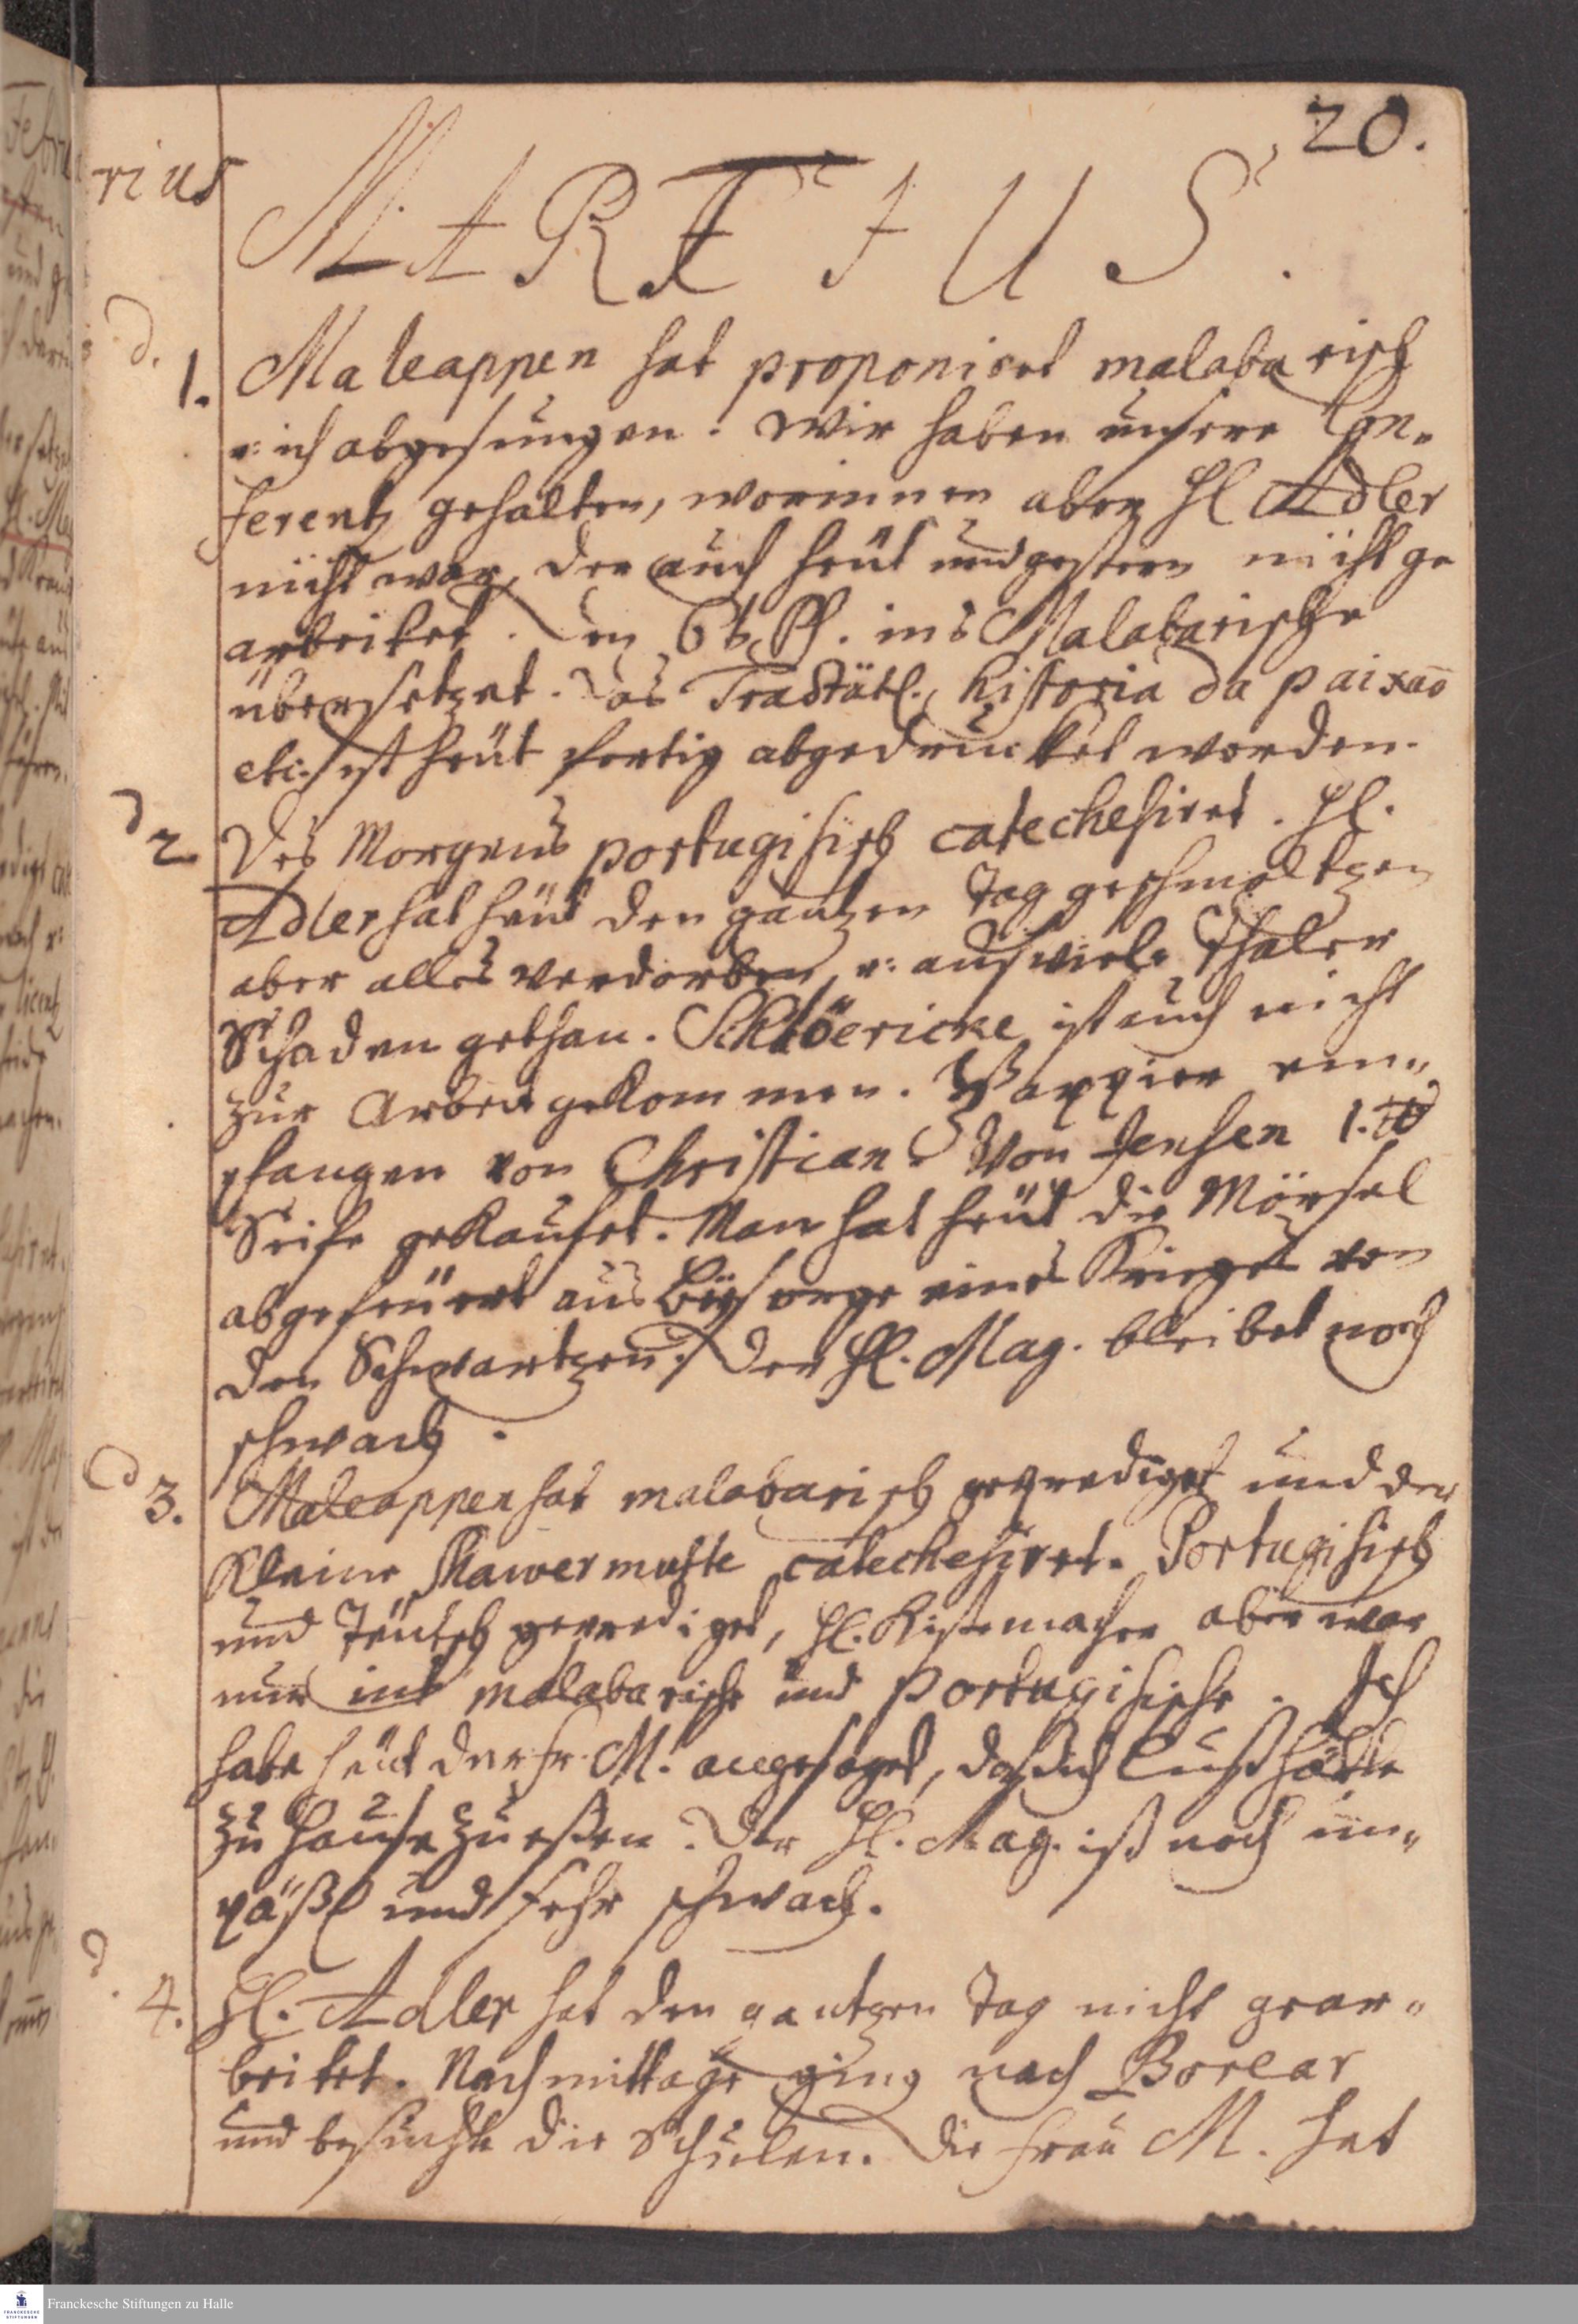 20.
rius
MARTIUS.
d. 1. Maleappen hat proponiret malabarisch
u: ich abgesungen. Wir haben unsere Con„
ferentz gehalten, worinnen aber Hl Adler
nicht war, der auch heut und gestern nicht ge
arbeitet. Den 6t. Ps. ins Malabarische
übersetzet. Das Tractätl. historia da paixaõ
etc. ist heut fertig abgedrucket worden.
d 2 Des Morgens portugisisch catechesiret. Hl.
Adler hat heut den gantzen Tag geschmoltzen
aber alles verdorben, u: auf viele Thaler
Schaden gethan. Schlöericke ist auch nicht
zur Arbeit gekommen. Pappier em„
pfangen von Christian. Von Jensen 1. ℔
Seife gekaufet. Man hat heut die Mörsel
abgefeuert aus Beysorge eines Krieges von
den Schwartzen. Der Hl. Mag. bleibet noch
schwach.
d 3. Maleappen hat malabarisch geprediget und der
kleine Schawermutte catechesiret. Portugisisch
und Teutsch geprediget, Hl. Kistenmacher aber war
nur ins malabarische und portugisische. Ich
habe heut der Fr. M. angesaget, daß ich Lust hätte
zu Hause zu eßen. Der Hl. Mag. ist noch un„
päßl und sehr schwach.
d. 4. Hl. Adler hat den gantzen Tag nicht gear„
beitet. Nachmittage ging nach Borear
und besuchte die Schulen. Die Frau M. hat
Franckesche Stiftungen zu Halle